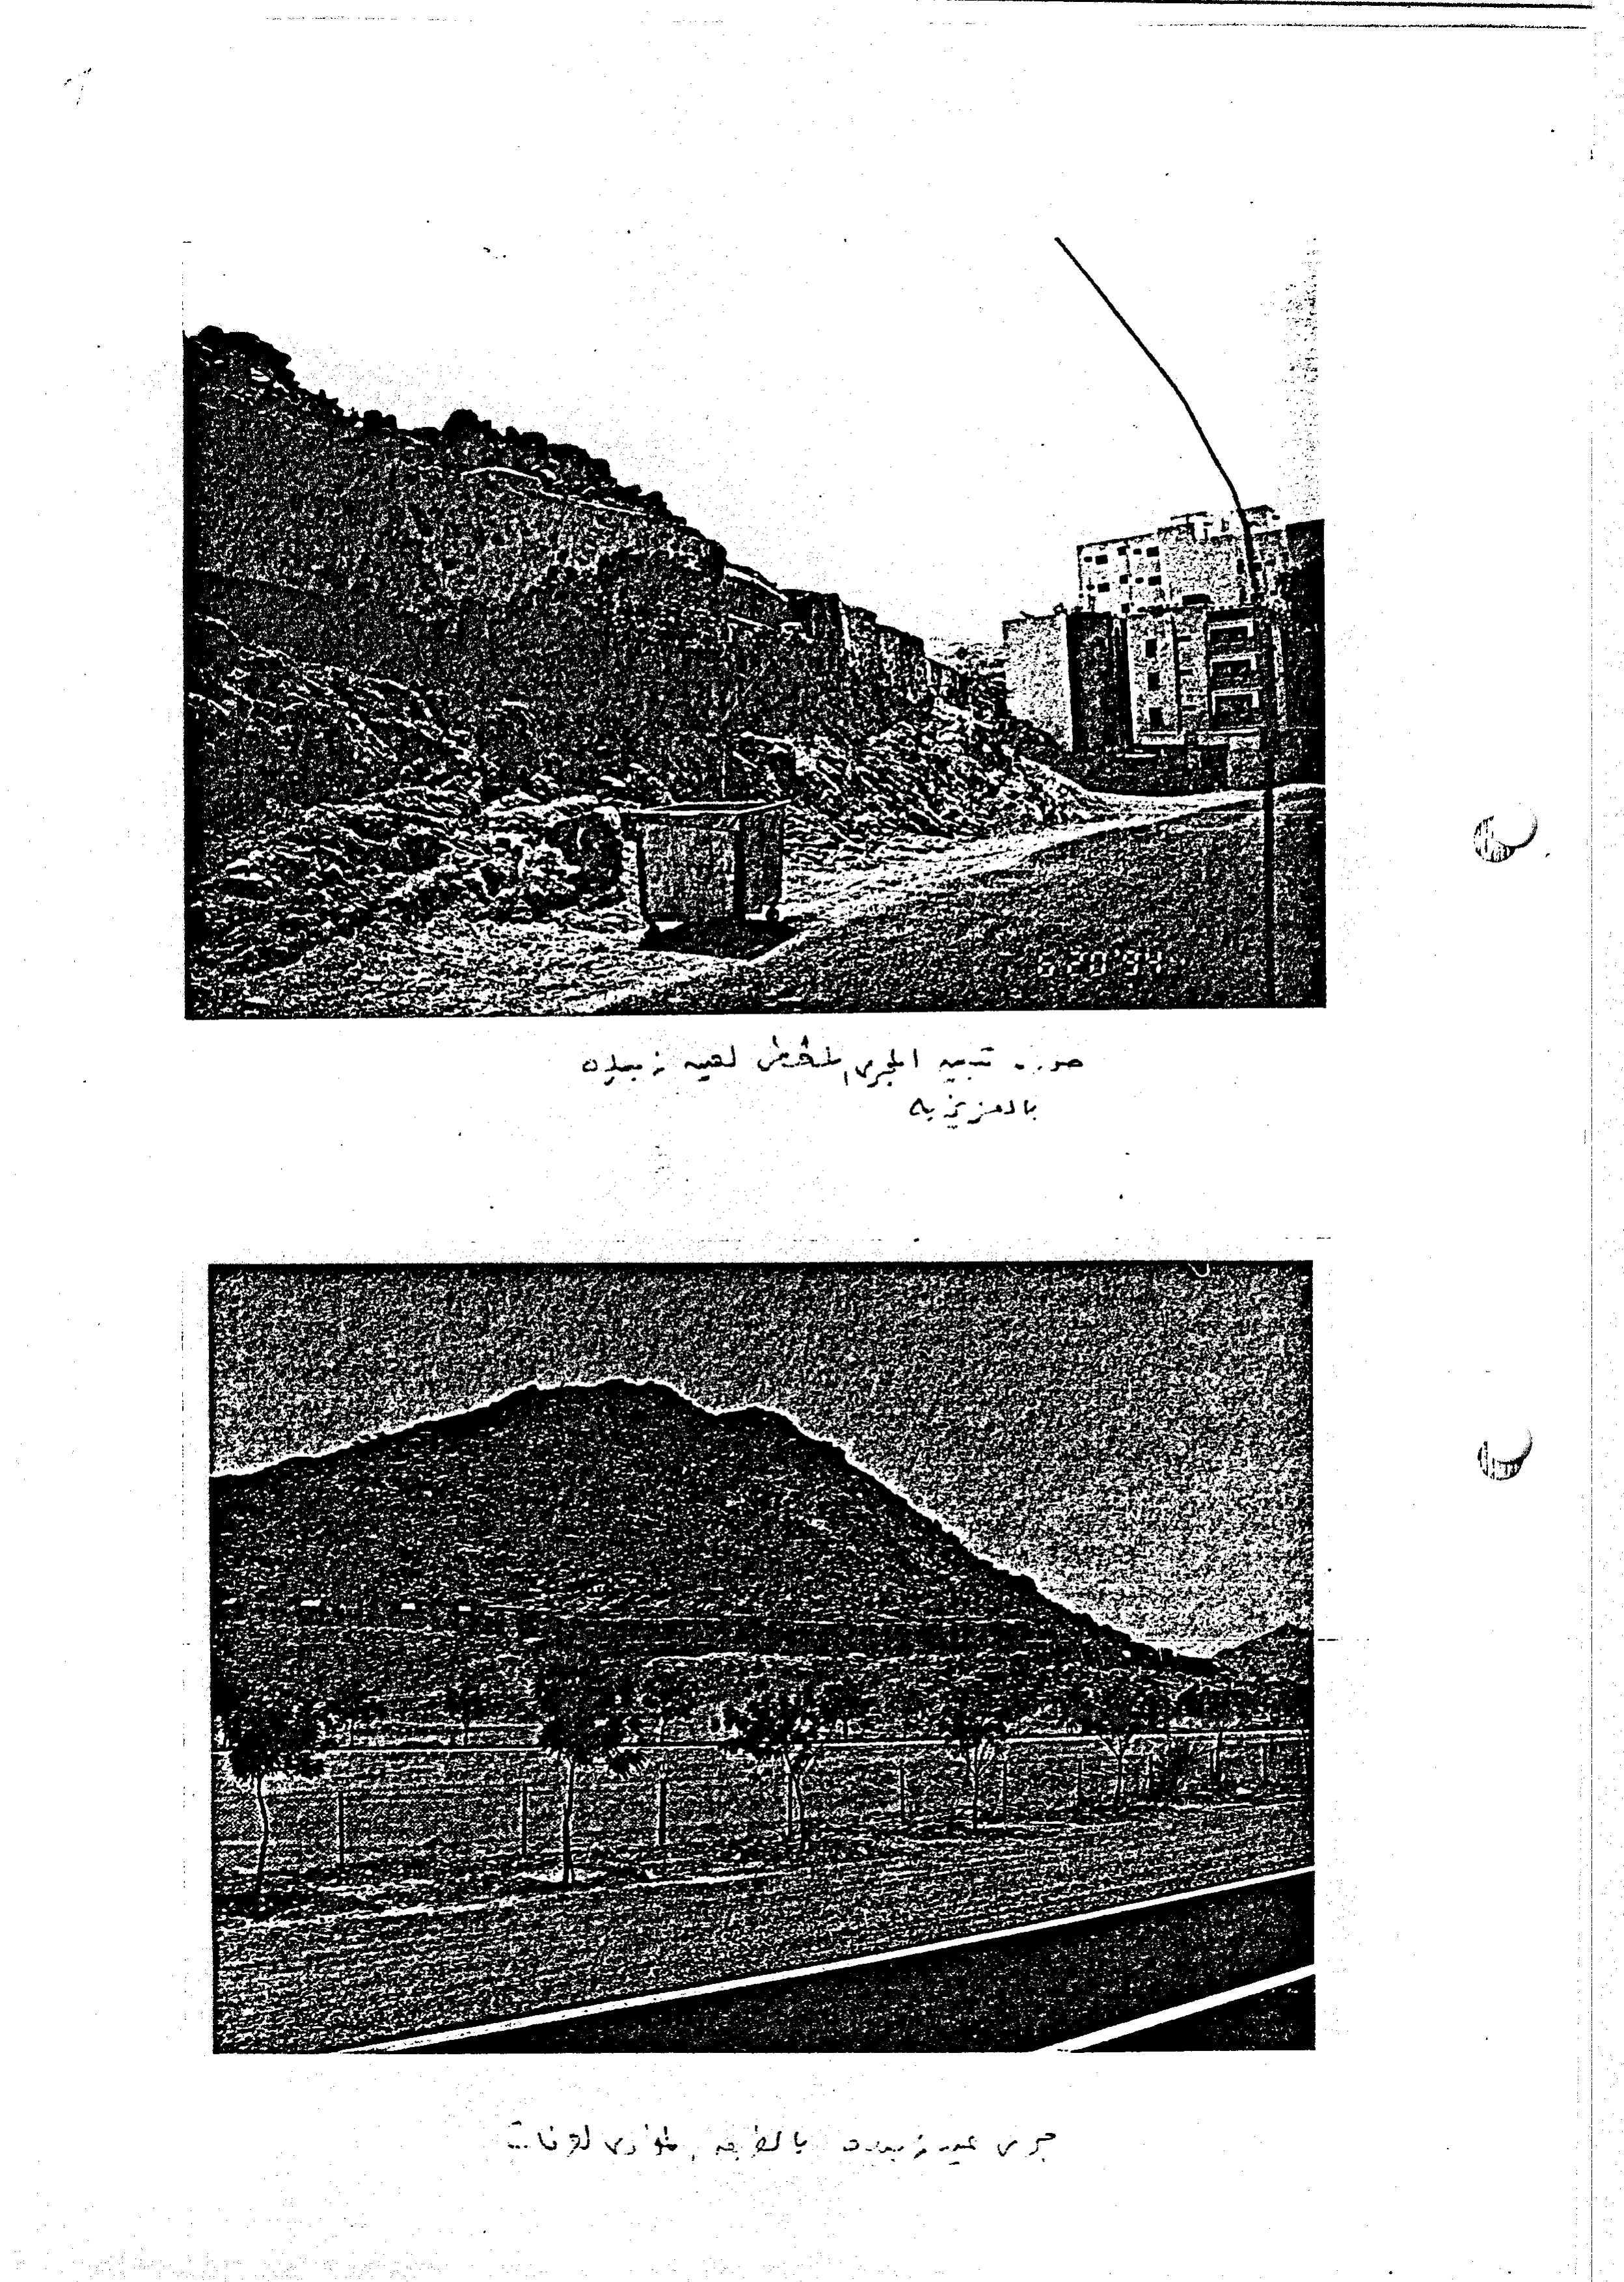 6 20 '94
صورة تبين المجرى المغطى لعين زبيدة
بالعزيزية
مجرى عين زبيدة بالطريق الموازي لعرفات